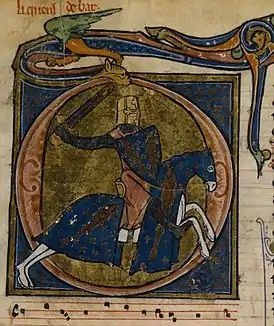 li quens de bar.